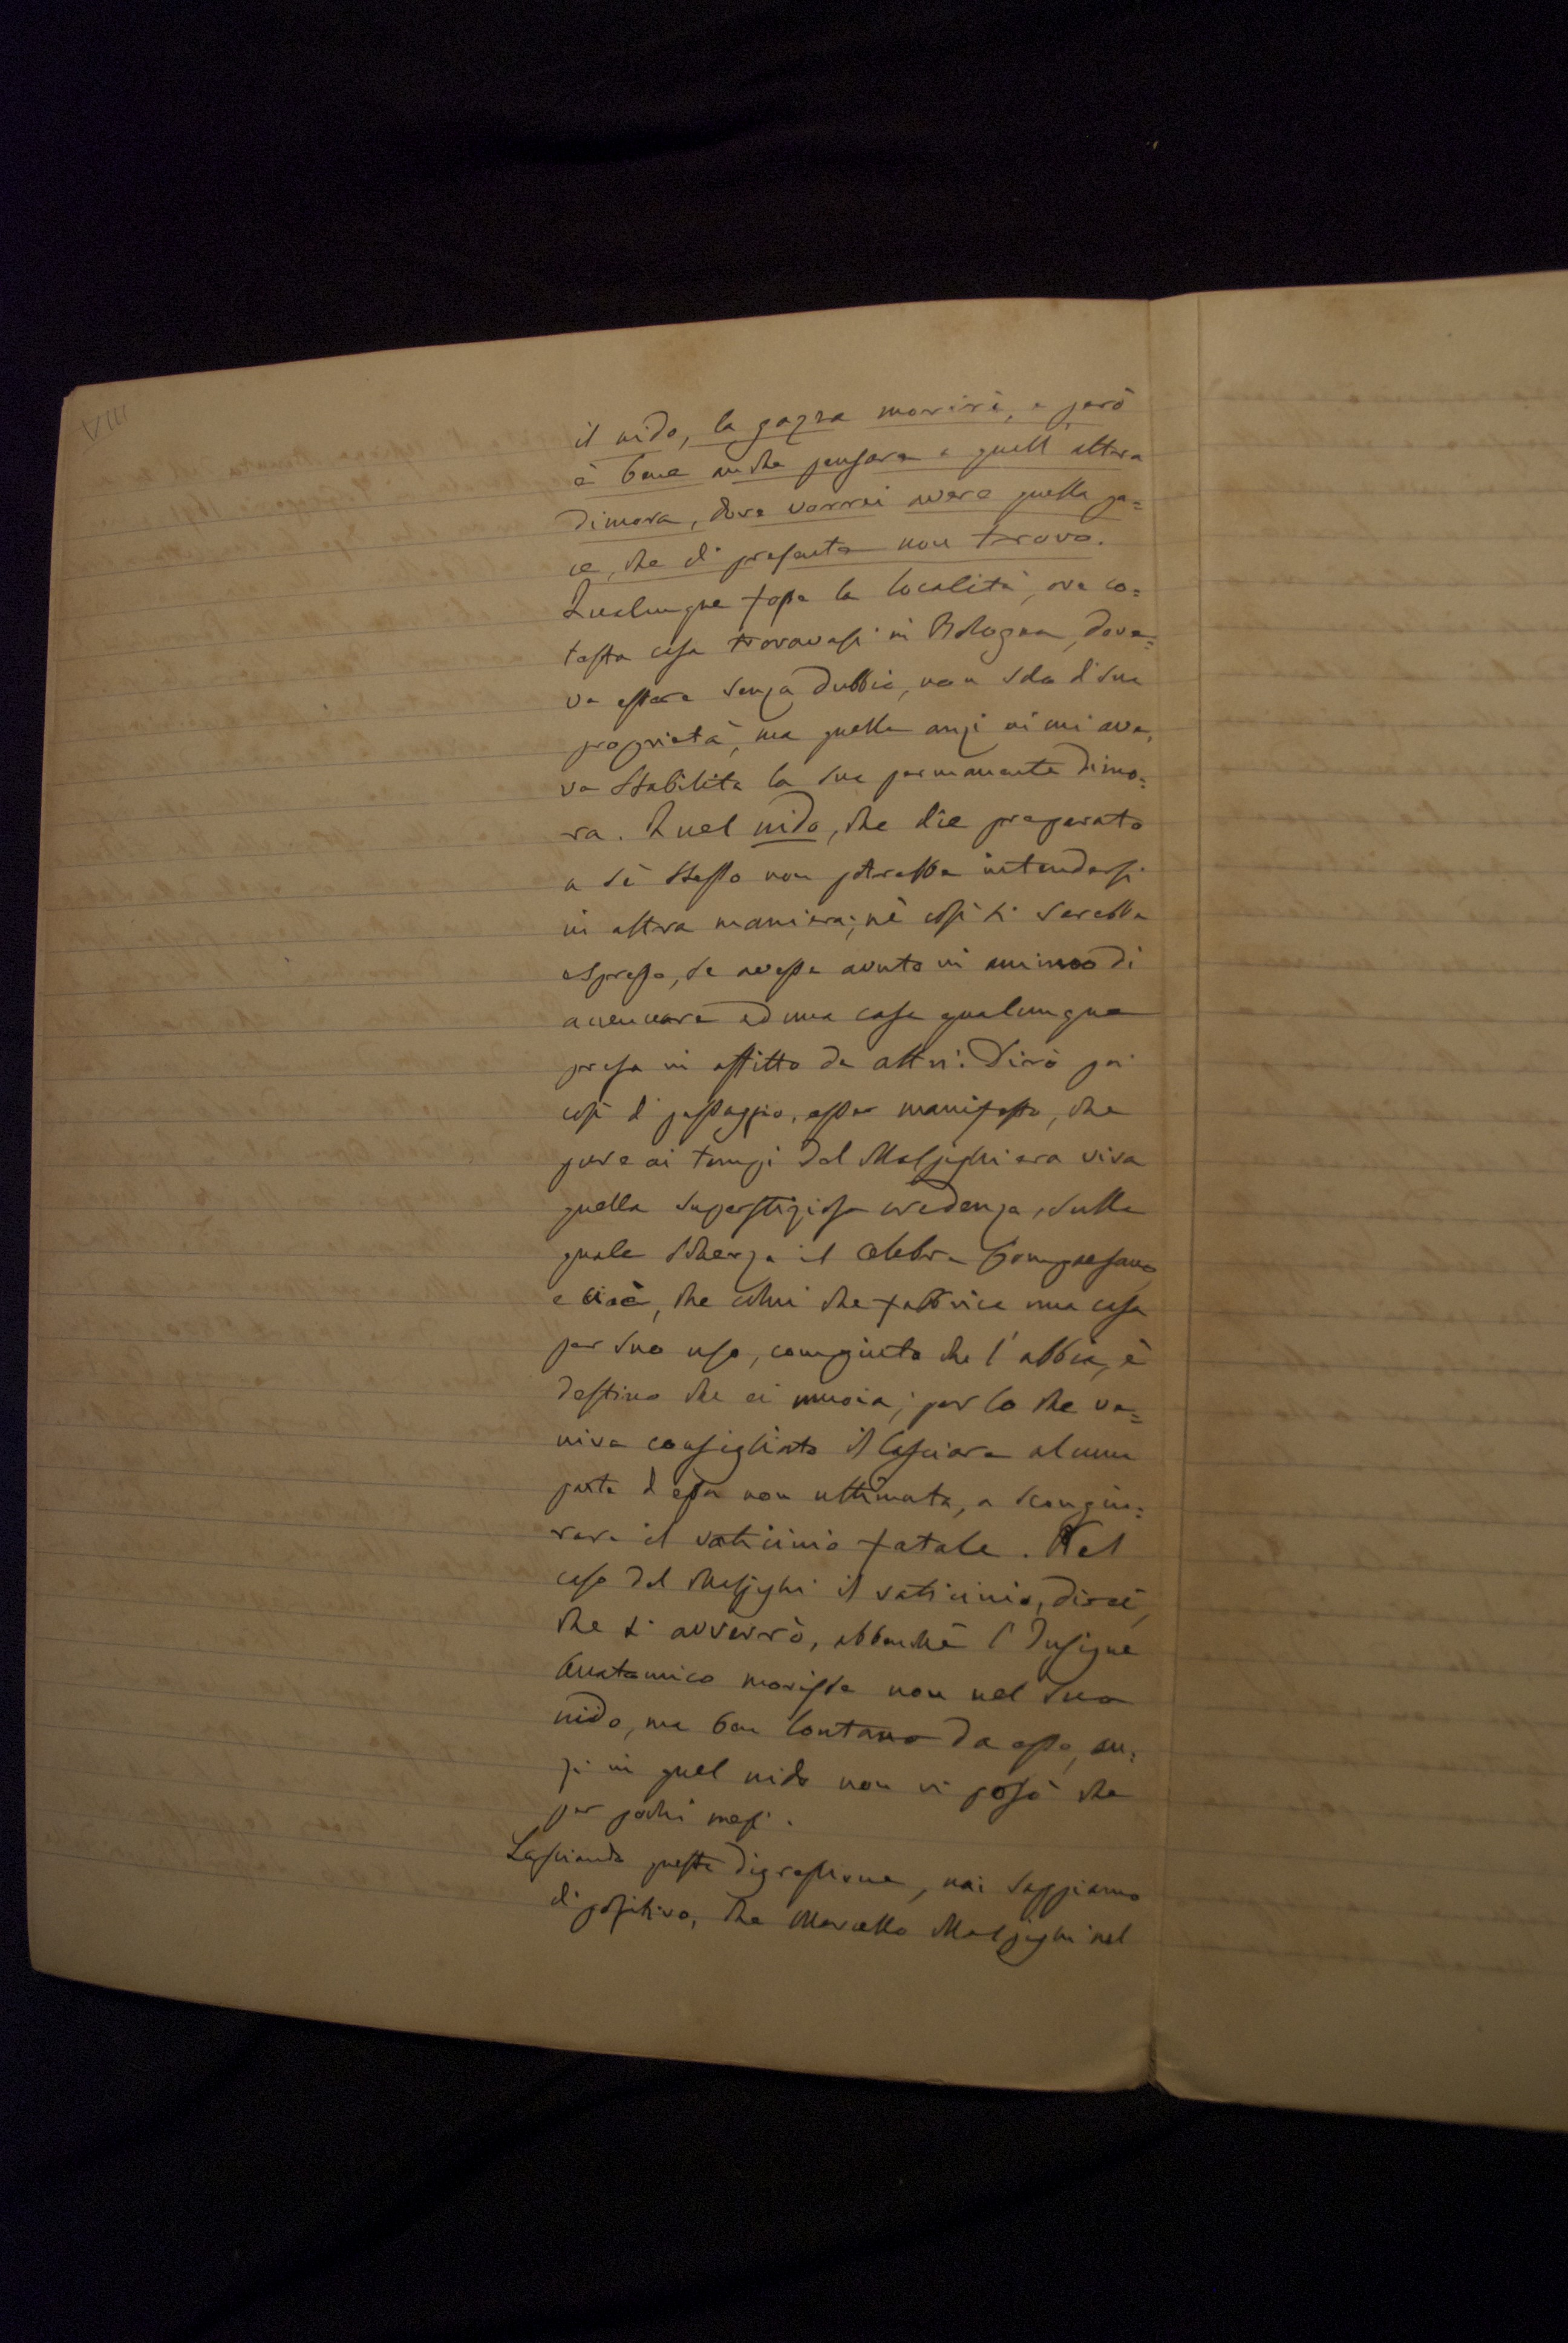 VIII
il nido, la gazza morirà, e però
è bene anche pensare a quell' altra
dimora, dove vorrei avere quella pa=
ce, che di presente non trovo.
Qualunque fosse la località, ove co=
testa casa trovavasi in Bologna, dove=
va essere senza dubbio, non solo di sua
proprietà, ma quella anzi in cui ave=
va stabilita la sua permanente dimo=
ra. Quel nido, che dice preparato
a sè stesso non potrebbe intendersi
in altra maniera; nè così si sarebbe
espresso, se avesse avuto in animo di
accennare ad una casa qualunque
presa in affitto da altri. Dirò poi
così di passaggio, esser manifesto, che
pure ai tempi del Malpighi era viva
quella superstiziosa credenza, sulla
quale scherza il celebre
e cioè, che colui che fabbrica una casa
per suo uso, compiuta che l' abbia, è
destino che ei muoia; per lo che ve=
niva consigliato il lasciare alcuna
parte d' essa non ultimata, a scongiu=
rare il vaticinio fatale. Nel
caso del Malpighi il vaticinio, direi,
che si avverò, abbenchè l' Insigne
Anatomico morisse non nel suo
nido, ma ben lontano da esso, an=
zi in quel nido non vi posò che
per pochi mesi.
Lasciando questa digressione, noi sappiamo
di positivo, che Marcello Malpighi nel